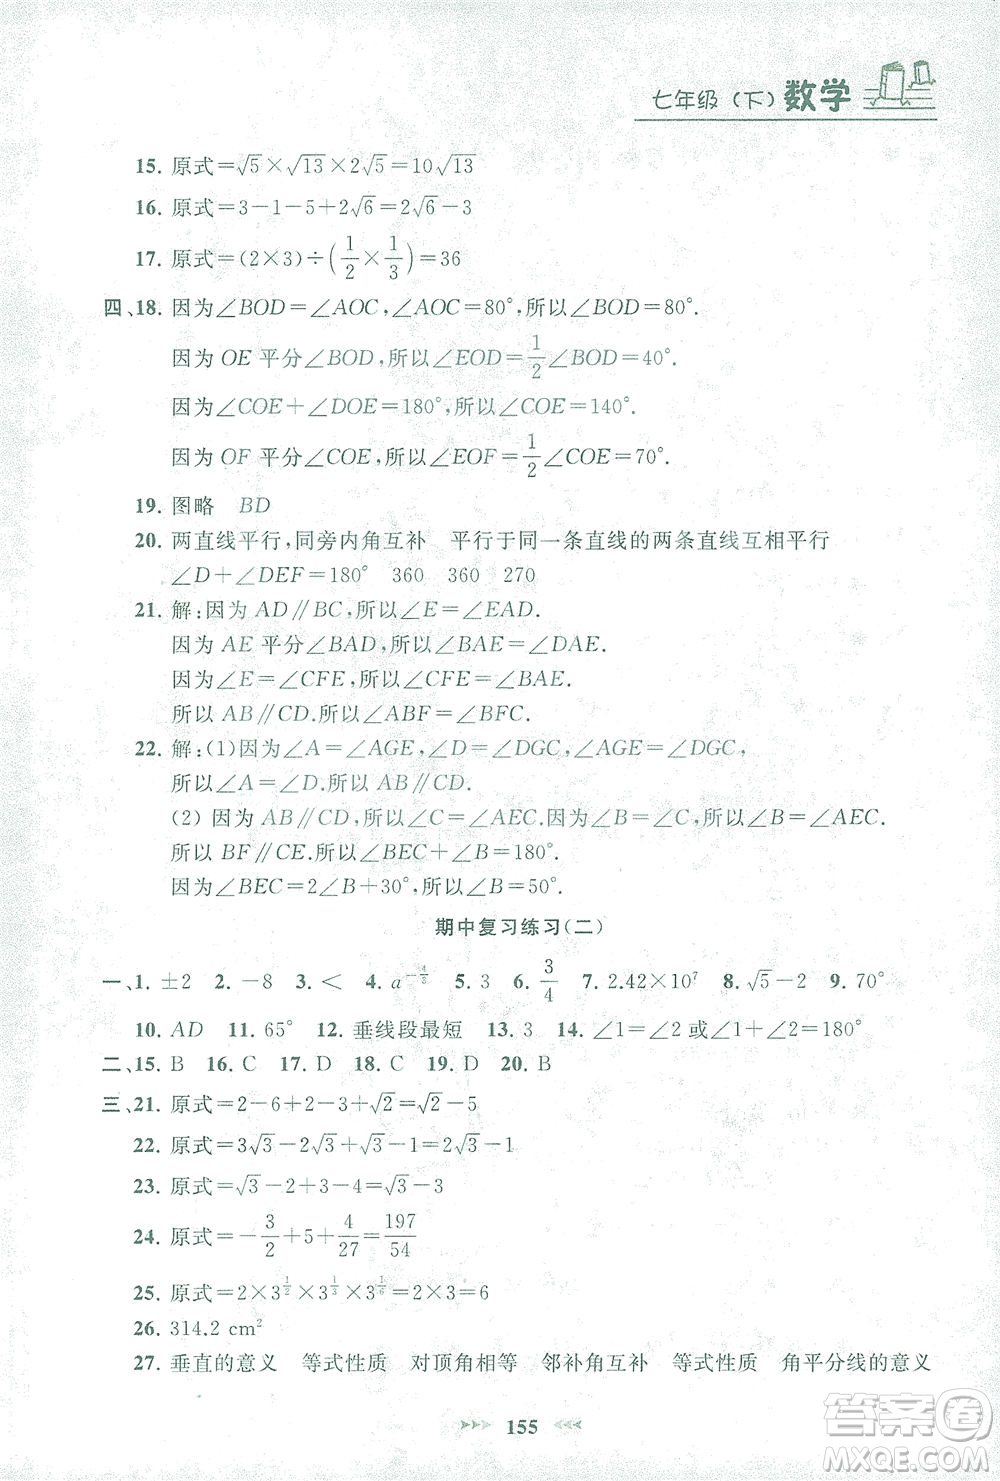 七年级（下）数学
15. 原式=√5×√13×2√5=10√13
16. 原式=3-1-5+2√6=2√6-3
17. 原式=(2×3)÷(1/2×1/3)=36
四、18. 因为∠BOD=∠AOC,∠AOC=80°,所以∠BOD=80°.
因为OE平分∠BOD,所以∠EOD=1/2∠BOD=40°.
因为∠COE+∠DOE=180°,所以∠COE=140°.
因为OF平分∠COE,所以∠EOF=1/2∠COE=70°.
19. 图略 BD
20. 两直线平行,同旁内角互补 平行于同一条直线的两条直线互相平行
∠D+∠DEF=180° 360 360 270
21. 解:因为AD∥BC,所以∠E=∠EAD.
因为AE平分∠BAD,所以∠BAE=∠DAE.
因为∠E=∠CFE,所以∠CFE=∠BAE.
所以AB∥CD.所以∠ABF=∠BFC.
22. 解:(1)因为∠A=∠AGE,∠D=∠DGC,∠AGE=∠DGC,
所以∠A=∠D.所以AB∥CD.
(2) 因为AB∥CD,所以∠C=∠AEC.因为∠B=∠C,所以∠B=∠AEC.
所以BF∥CE.所以∠BEC+∠B=180°.
因为∠BEC=2∠B+30°,所以∠B=50°.
期中复习练习(二)
一、1. ±2 2. -8 3. < 4. 5. 3 6. 3/4 7. 2.42×10⁷ 8. √5-2 9. 70°
10. AD 11. 65° 12. 垂线段最短 13. 3 14. ∠1=∠2或∠1+∠2=180°
二、15. B 16. C 17. D 18. C 19. D 20. B
三、21. 原式=2-6+2-3+√2=√2-5
22. 原式=3√3-2√3+√3-1=2√3-1
23. 原式=√3-2+3-4=√3-3
24. 原式=-3/2+5+4/27=197/54
25. 原式=2×3^(1/2)×3^(1/3)×3^(1/6)=2×3=6
26. 314.2 cm²
27. 垂直的意义 等式性质 对顶角相等 邻补角互补 等式性质 角平分线的意义
155
答案圈
MXQE.COM